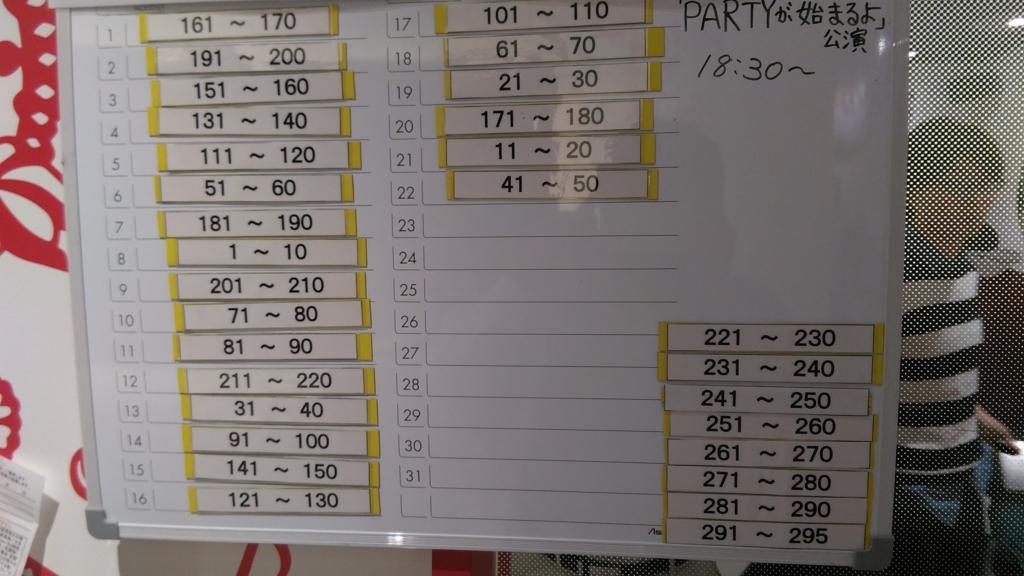 1 161 ～ 170
2 191 ～ 200
3 151 ～ 160
4 131 ～ 140
5 111 ～ 120
6 51 ～ 60
7 181 ～ 190
8 1 ～ 10
9 201 ～ 210
10 71 ～ 80
11 81 ～ 90
12 211 ～ 220
13 31 ～ 40
14 91 ～ 100
15 141 ～ 150
16 121 ～ 130
17 101 ～ 110
18 61 ～ 70
19 21 ～ 30
20 171 ～ 180
21 11 ～ 20
22 41 ～ 50
23
24
25
26
27
28
29
30
31
「PARTYが始まるよ」
公演
18:30～
221 ～ 230
231 ～ 240
241 ～ 250
251 ～ 260
261 ～ 270
271 ～ 280
281 ～ 290
291 ～ 295